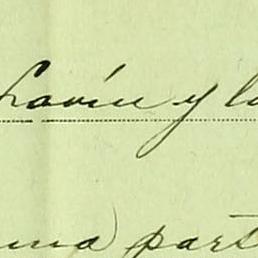 Lavín y la
una part